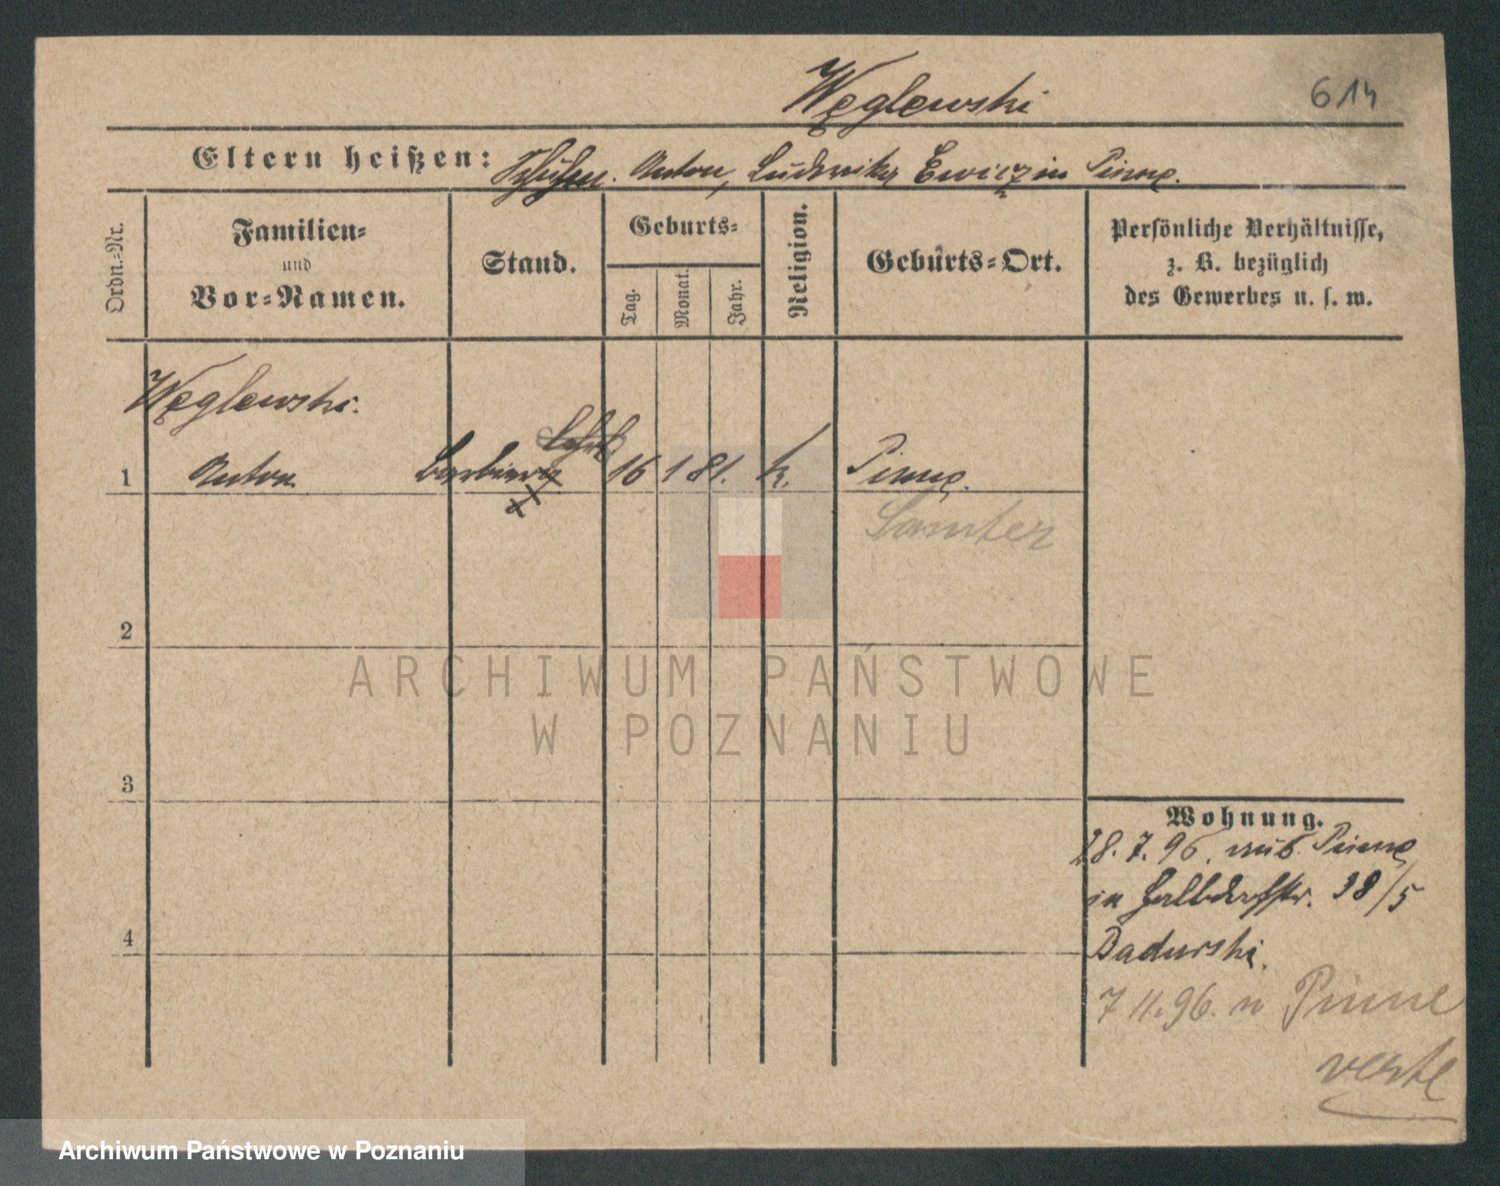 Węglewski
614
Eltern heißen: Anton, Ludwika Ewicz in Pinne.
Ordn.-Nr.
Familien-
und
Vor-Namen.
Stand.
Geburts-
Tag.
Monat.
Jahr.
Religion.
Geburts-Ort.
Persönliche Verhältnisse,
z. B. bezüglich
des Gewerbes u. s. w.
Węglewski.
1 Anton 16 1 81. k. Pinne.
Samter
2
3
4
Wohnung.
28. 7. 96. aus Pinne
in Halbdorfstr. 38/5
Badurski.
7 11. 96. n Pinne
verte
ARCHIWUM PAŃSTWOWE
W POZNANIU
Archiwum Państwowe w Poznaniu